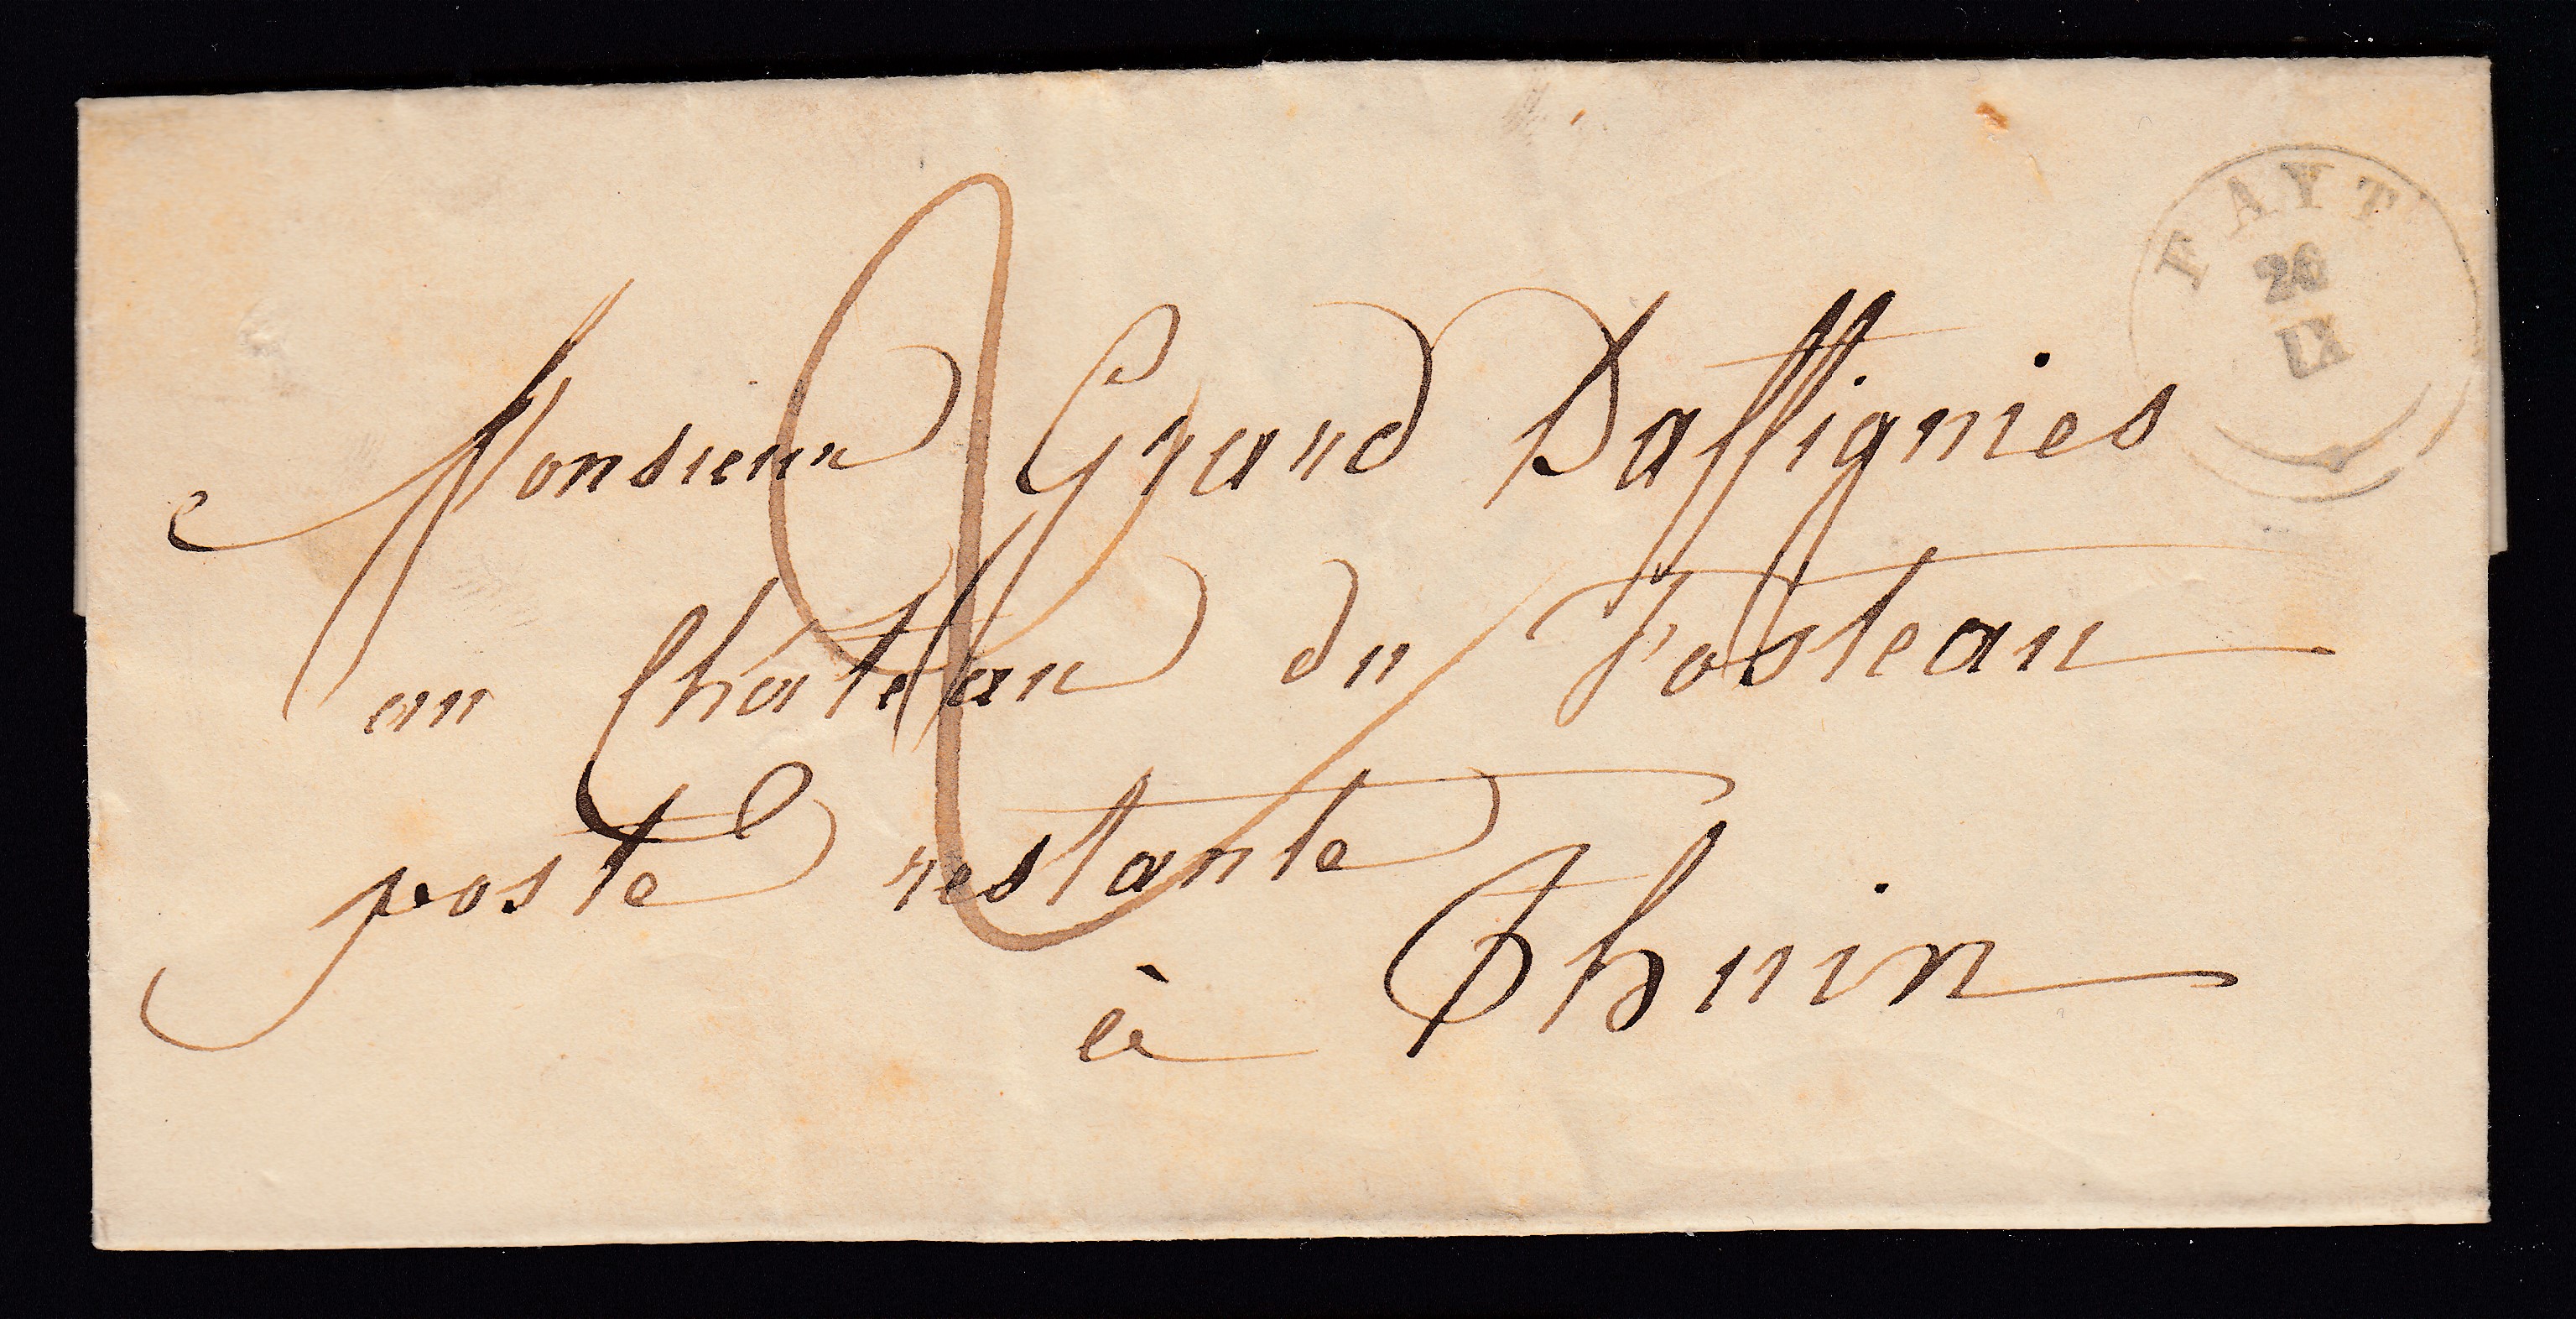 FAYT
26
IX
2
Monsieur Grand Daffignies
au Château du Fosteau
poste restante
à Thuin